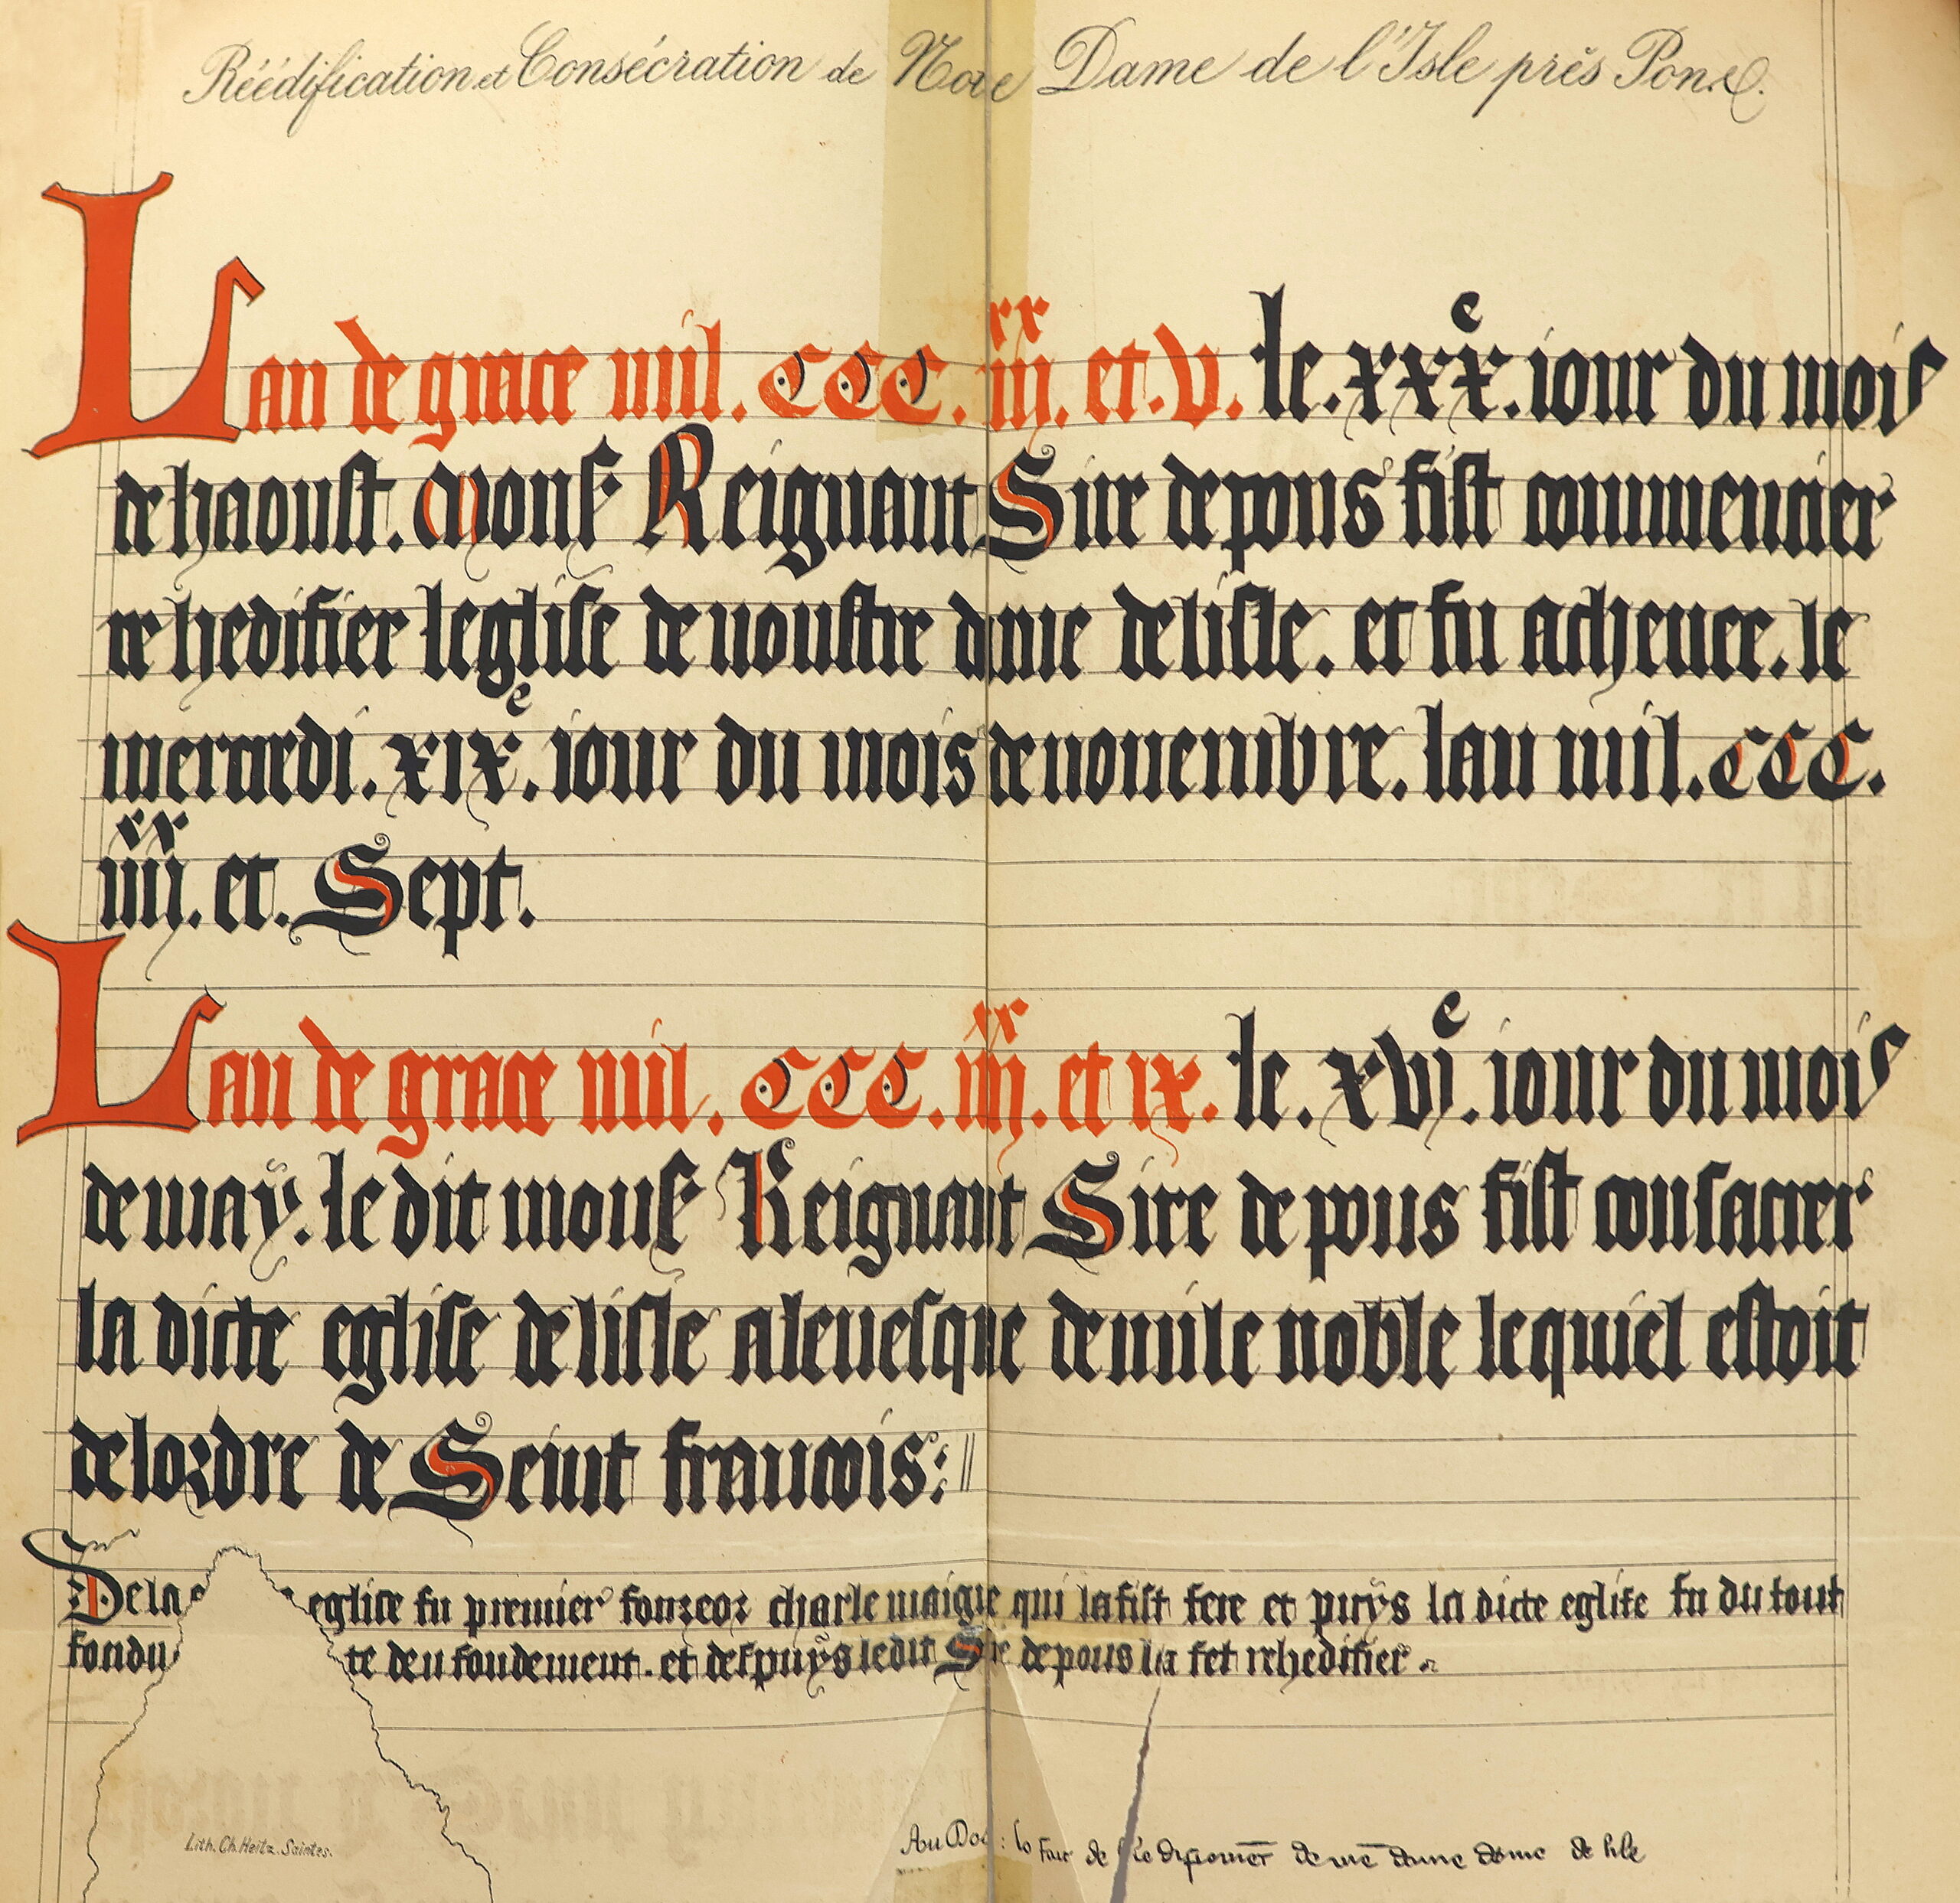 Réédification et Consécration de No e Dame de l'Isle près Pons.
Lan de grace mil. CCC. iiij. et. V. le. xxx. iour du mois
xx e
de haoust. Mons Reignaut Sire de pons fist commencier
re hedifier leglise de noustre dame de lisle. et fu achevee. le
mercredi. xix. iour du mois de novembre. lan mil. CCC.
e
iiij. et. Sept.
xx
Lan de grace mil. CCC. iiij. et ix. le. xvi. iour du mois
xx e
de may. le dit mons Reignaut Sire de pons fist consacrer
la dicte eglise de lisle a levesque de nule noble lequiel estoit
de lordre de Seint francois
De la eglise fu premier fonzeor charle maigne qui la fist fere et puys la dicte eglise fu du tout
fondu te deu fondement. et despuys ledit Sire de pons la fet rehedifier
Lith. Ch. Heitz. Saintes.
Au Dos : lo fait de dame de lile